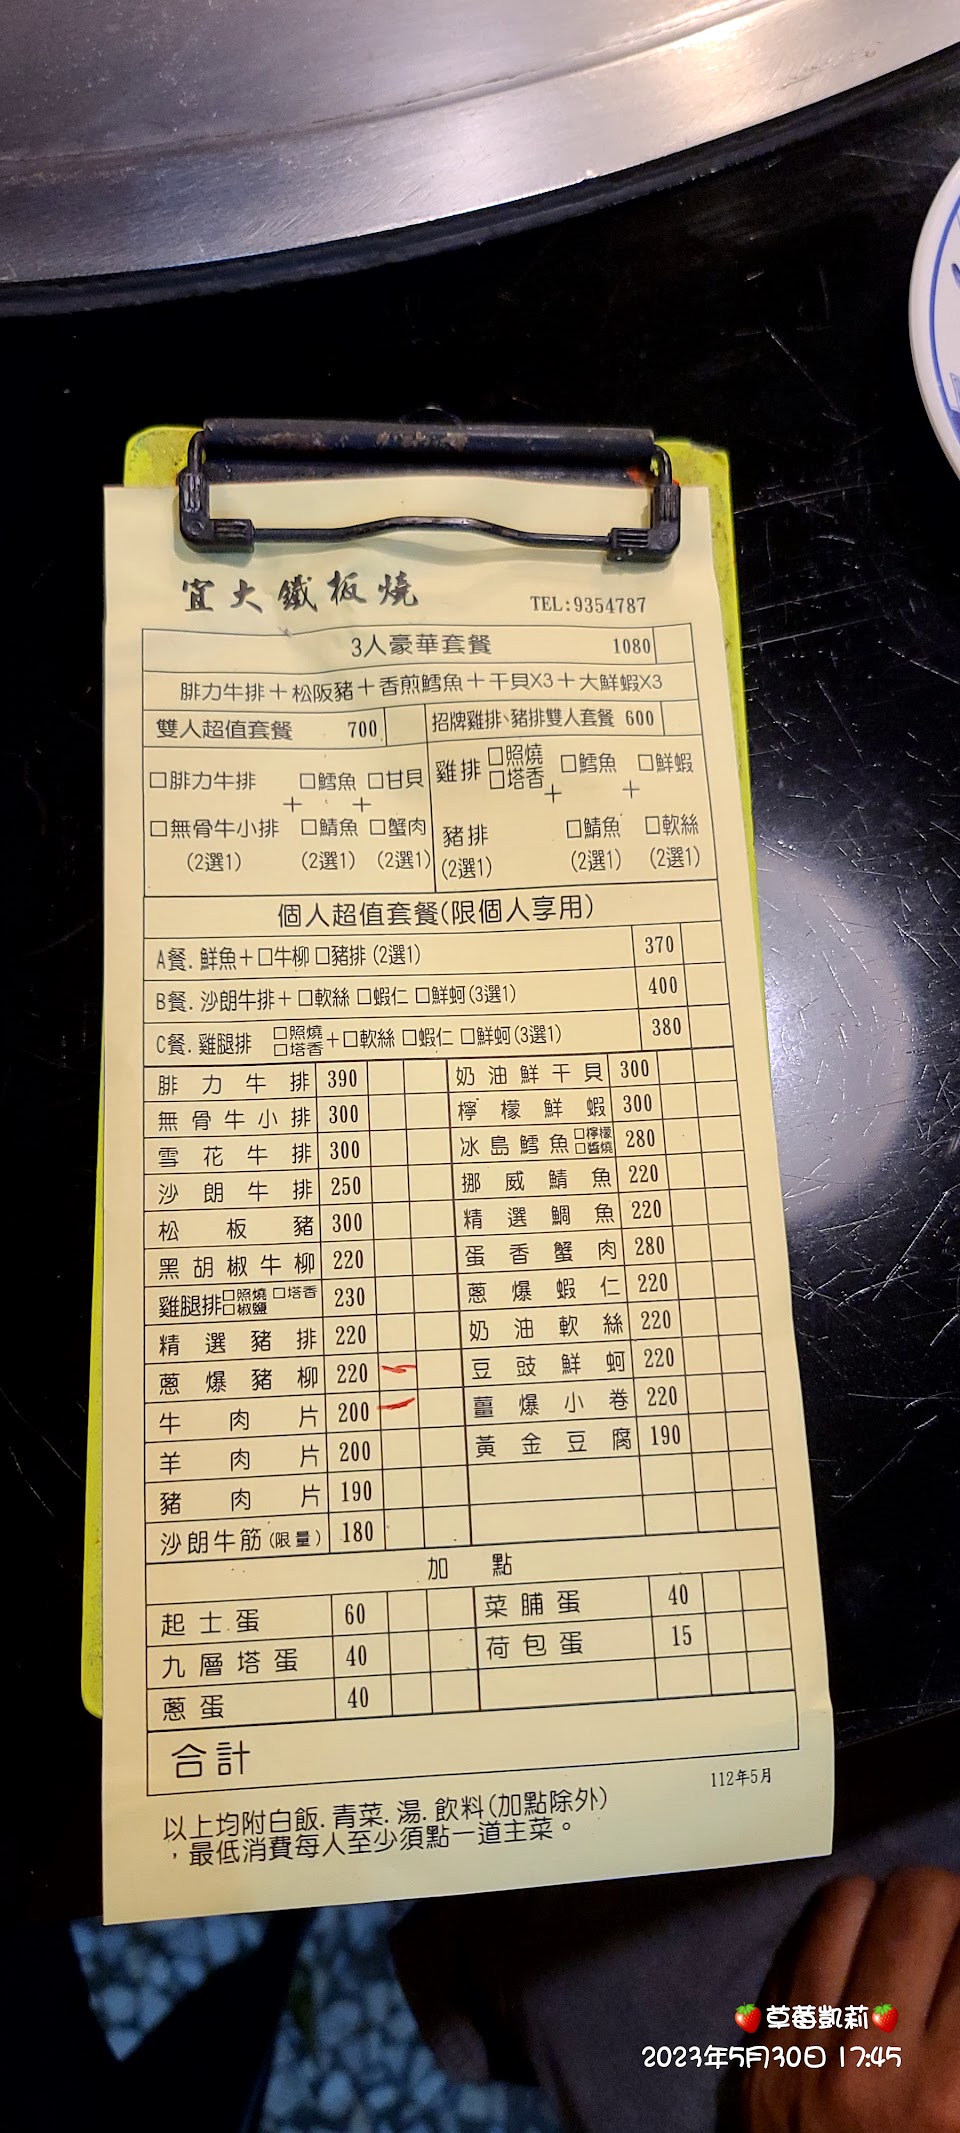 宜大鐵板燒 TEL:9354787
3人豪華套餐 1080
腓力牛排+松阪豬+香煎鱈魚+干貝X3+大鮮蝦X3
雙人超值套餐 700 招牌雞排、豬排雙人套餐 600
□腓力牛排 + □鱈魚 + □甘貝 雞排 □照燒 □塔香 + □鱈魚 + □鮮蝦
□無骨牛小排 □鯖魚 □蟹肉 豬排 □鯖魚 □軟絲
(2選1) (2選1) (2選1) (2選1) (2選1) (2選1)
個人超值套餐(限個人享用)
A餐. 鮮魚+□牛柳 □豬排 (2選1) 370
B餐. 沙朗牛排+ □軟絲 □蝦仁 □鮮蚵(3選1) 400
C餐. 雞腿排 □照燒 □塔香 +□軟絲 □蝦仁 □鮮蚵(3選1) 380
腓力牛排 390 奶油鮮干貝 300
無骨牛小排 300 檸檬鮮蝦 300
雪花牛排 300 冰島鱈魚 □檸檬 □醬燒 280
沙朗牛排 250 挪威鯖魚 220
松板豬 300 精選鯛魚 220
黑胡椒牛柳 220 蛋香蟹肉 280
雞腿排 □照燒 □塔香 □椒鹽 230 蔥爆蝦仁 220
精選豬排 220 奶油軟絲 220
蔥爆豬柳 220 豆豉鮮蚵 220
牛肉片 200 薑爆小卷 220
羊肉片 200 黃金豆腐 190
豬肉片 190
沙朗牛筋(限量) 180
加點
起士蛋 60 菜脯蛋 40
九層塔蛋 40 荷包蛋 15
蔥蛋 40
合計
112年5月
以上均附白飯.青菜.湯.飲料(加點除外)
，最低消費每人至少須點一道主菜。
🍓草莓凱莉🍓
2023年5月30日 17:45